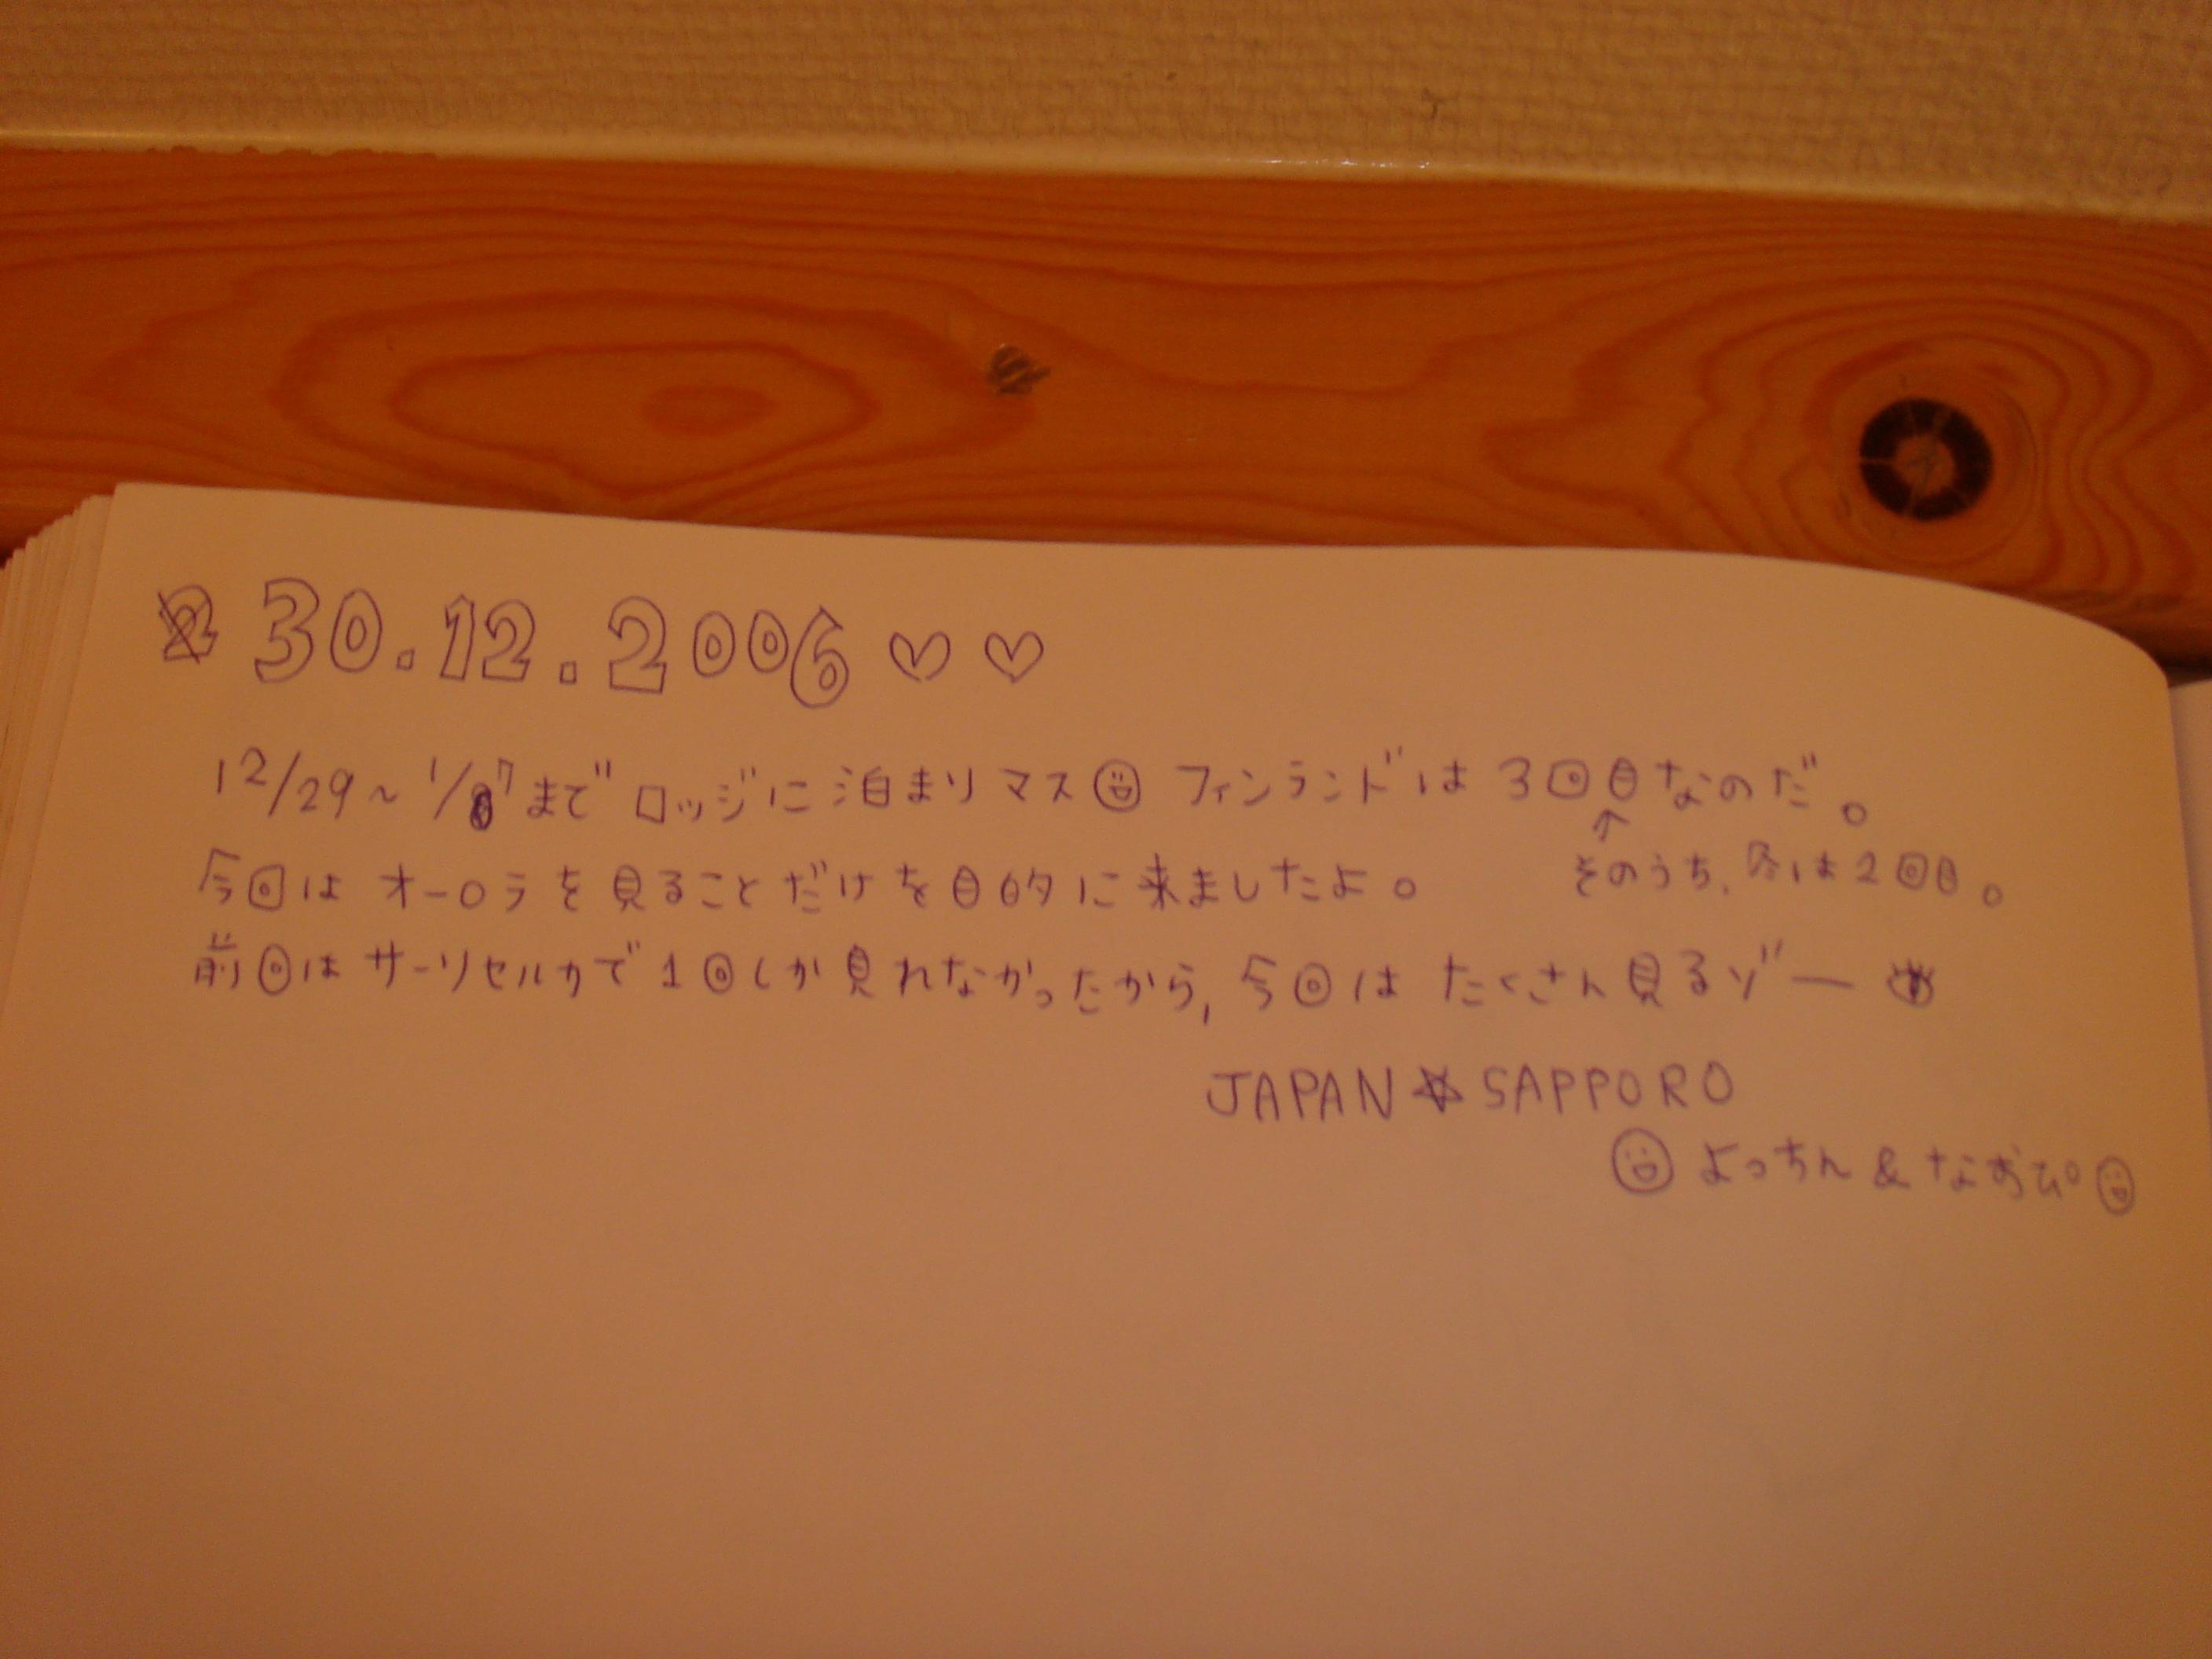 30.12.2006 ♡ ♡
12/29~1/7まで ロッジに泊まりマス フィンランドは 3回目なのだ。
↑
そのうち、冬は2回目。
今回は オーロラを見ることだけを目的に来ましたよ。
前回は サーリセルカで1回しか見れなかったから, 今回は たくさん見るゾー
JAPAN ☆ SAPPORO
よっちん & なおぴ